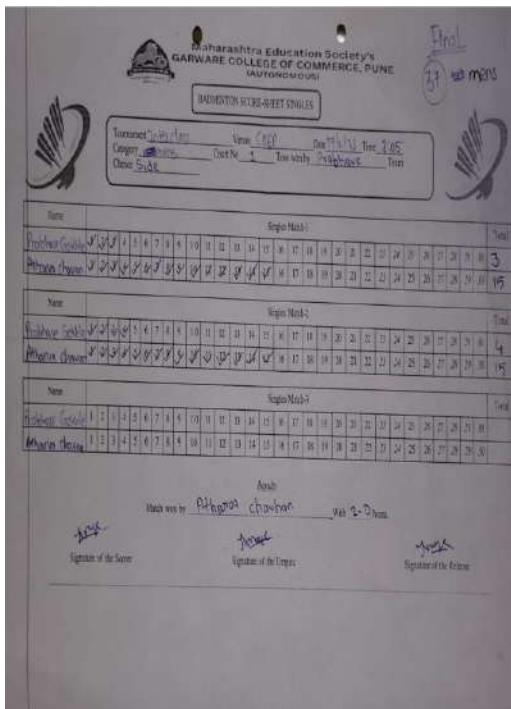 Final
37 mens
Maharashtra Education Society's
GARWARE COLLEGE OF COMMERCE, PUNE
(AUTONOMOUS)
BADMINTON SCORE-SHEET SINGLES
Tournament Venue COEP Date Time 2:05
Category mens Court No 1 Toss won by Team
Choice Side
Name Singles Match-1 Total
1 2 3 4 5 6 7 8 9 10 11 12 13 14 15 16 17 18 19 20 21 22 23 24 25 26 27 28 29 30 3
1 2 3 4 5 6 7 8 9 10 11 12 13 14 15 16 17 18 19 20 21 22 23 24 25 26 27 28 29 30 15
Name Singles Match-2 Total
1 2 3 4 5 6 7 8 9 10 11 12 13 14 15 16 17 18 19 20 21 22 23 24 25 26 27 28 29 30 4
1 2 3 4 5 6 7 8 9 10 11 12 13 14 15 16 17 18 19 20 21 22 23 24 25 26 27 28 29 30 15
Name Singles Match-3 Total
1 2 3 4 5 6 7 8 9 10 11 12 13 14 15 16 17 18 19 20 21 22 23 24 25 26 27 28 29 30
1 2 3 4 5 6 7 8 9 10 11 12 13 14 15 16 17 18 19 20 21 22 23 24 25 26 27 28 29 30
Result
Match won by Atharva chavhan With 2-0 Points
Signature of the Scorer Signature of the Umpire Signature of the Referee